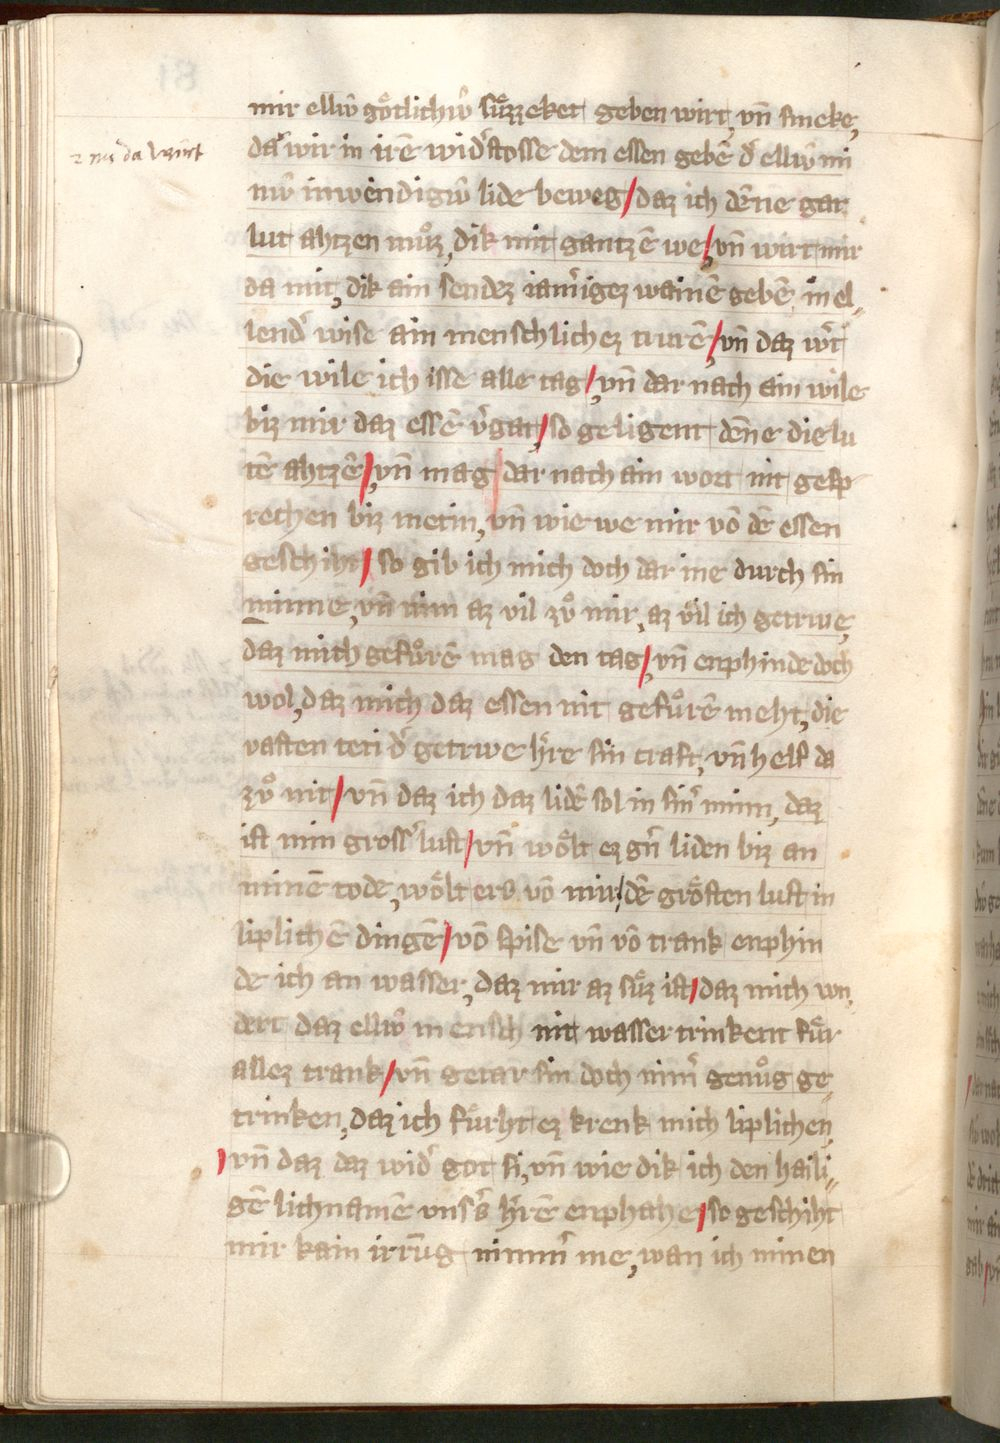 mir elliv̂ goͤtlichiv̂ suͤzzeket geben wirt, vn̄ smeke,
2 mir da wirt
da wir in irē wid̕stosse dem essen gebē d̕ elliv̂ mi
niv̂ inwendigiv̂ lide beweg / daz ich dēne gar
lut ahtzen muͦz, dik mit gantzē we / vn̄ wirt mir
da mit, dik ain sendez iam̕igez wainē gebē, in el⸗
lend̕ wise ain menschlichez trurē / vn̄ daz w̕t
die wile ich isse alle tag / vn̄ dar nach ain wile
biz mir daz essē v̕gat / so geligent dēne die lu
tē ahtzē / vn̄ mag dar nach ain wort nit gesp
rechen biz metin, vn̄ wie we mir vō dē essen
geschiht / so gib ich mich doch dar ine durch sin
minne, vn̄ nim az vil zuͦ mir, az vil ich getrwe,
daz mich gefuͦrē mag den tag / vn̄ enphinde doch
wol, daz mich daz essen nit gefuͦrē meht, die
vasten teti d̕ getrwe h̕re sin craft, vn̄ helf da
zuͦ nit / vn̄ daz ich daz lidē sol in sin̕ minn, daz
ist min gross̕ lust / vn̄ woͤlt ez gn̕ liden biz an
minē tode, woͤlt ers vō mir / dē groͤsten lust in
liplichē dingē / vō spise vn̄ vō trank enphin
de ich an wasser, daz mir az suͤz ist / daz mich wn
dert daz elliv̂ mensch nit wasser trinkent fuͤr
allez trank / vn̄ getar sin doch nim̕ genuͦg ge⸗
trinken, daz ich fuͤrht ez krenk mich liplichen
/ vn̄ daz daz wid̕ got si, vn̄ wie dik ich den haili⸗
gē lichnamē vns̕s h̕rē enphahe / so geschiht
mir kain irrūg nimm̕ me, wan ich minen